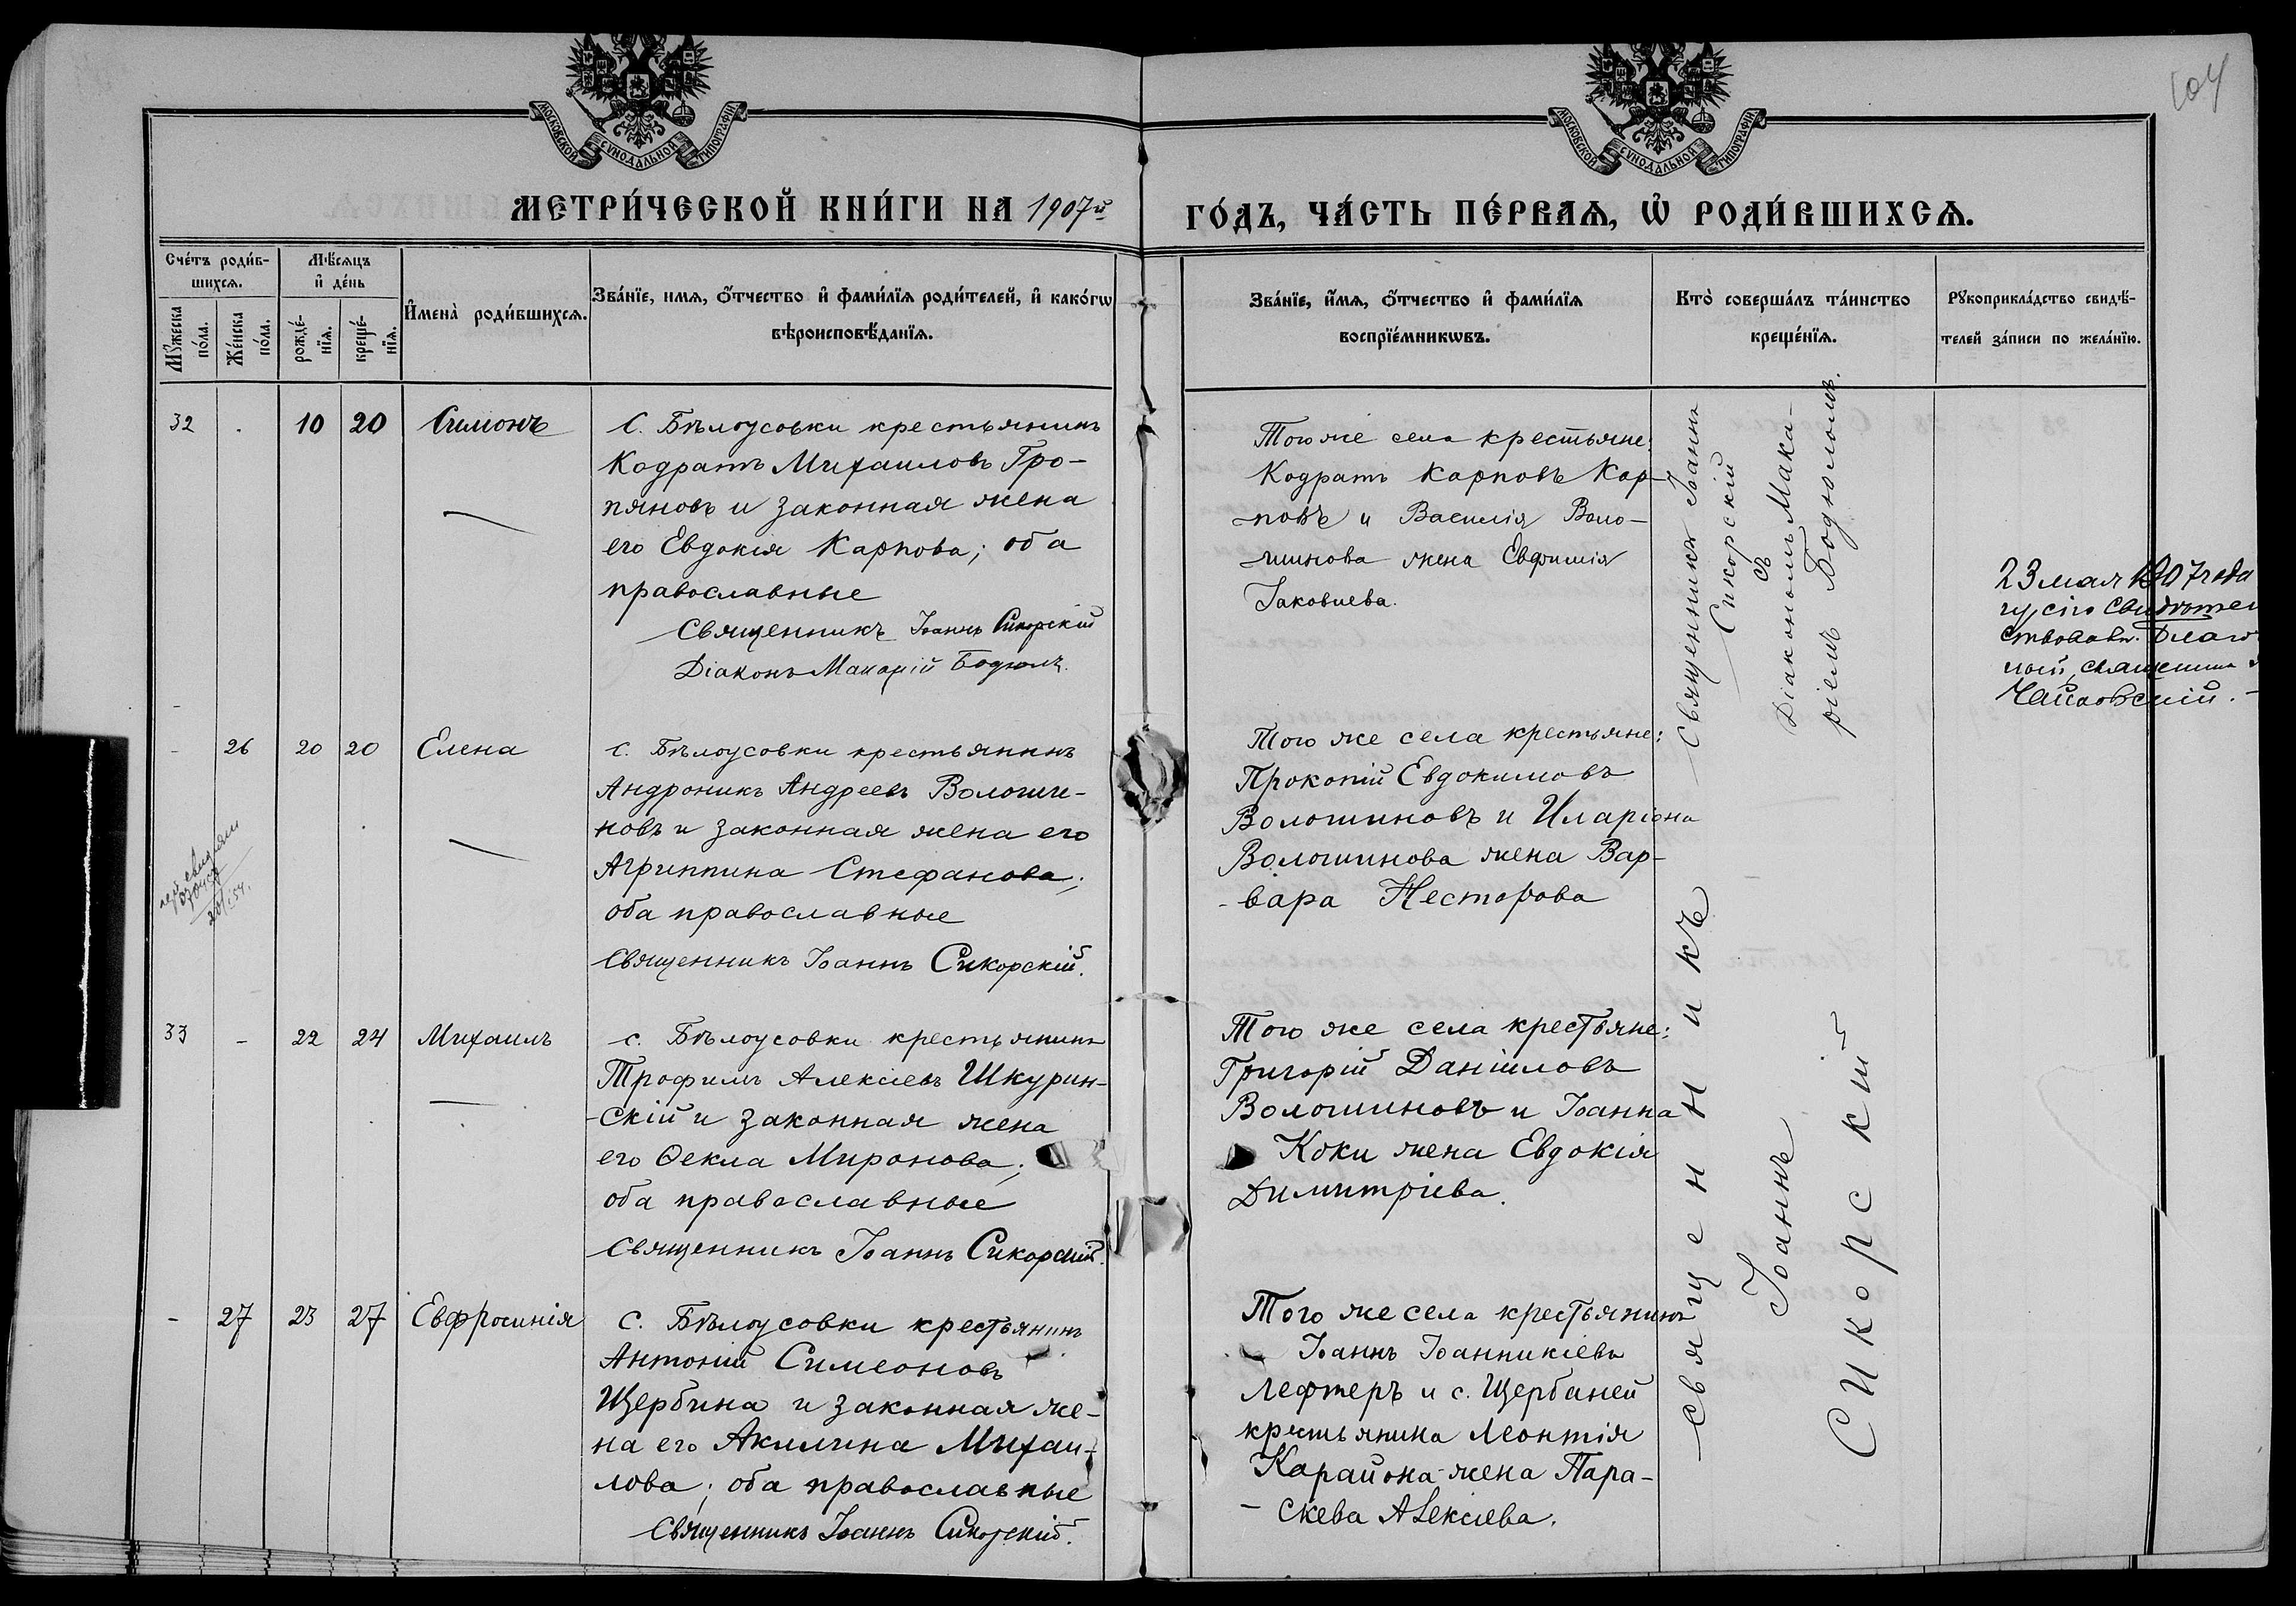 104
МОСКОВСКОЙ СѴНОДАЛЬНОЙ ТИПОГРАФІИ
МОСКОВСКОЙ СѴНОДАЛЬНОЙ ТИПОГРАФІИ
МЕТРИ́ЧЕСКОЙ КНИ́ГИ НА 1907й
ГО́ДЪ, ЧА́СТЬ ПЕ́РВАѦ, Ѡ҆ РОДИ́ВШИХСѦ.
Сче́тъ роди́в-
шихсѧ.
Мѣ́сѧцъ
и҆ де́нь
Мꙋ́жеска
по́ла.
Же́нска
по́ла.
рожде́-
нїѧ.
креще́-
нїѧ.
И҆мена̀ роди́вшихсѧ.
Зва́нїе, имѧ, ѻ҆́тчество и҆ фами́лїѧ роди́телей, и҆ како́гѡ
вѣроисповѣ́данїѧ.
Зва́нїе, и҆́мѧ, ѻ҆́тчество и҆ фами́лїѧ
воспрїе́мникѡвъ.
Кто̀ соверша́лъ та́инство
креще́нїѧ.
Рꙋкоприкла́дство свидѣ́-
телей за́писи по жела́нїю.
32 . 10 20 Симонъ
С. Бѣлоусовки крестьянинъ
Кодратъ Михаиловъ Гро-
пяновъ и законная жена
его Евдокія Карпова; оба
православные
Священникъ Іоаннъ Сикорскій
Діаконъ Макарій Бодюлъ.
Того же села крестьяне:
Кодратъ Карповъ Кар-
-повъ и Василія Воло-
шинова жена Евфимія
Іаковлева.
Священникъ Іоаннъ
Сикорскій
съ
Діакономъ Мака-
ріемъ Бодюломъ.
23 мая 1907 года
Чайковскій.
- 26 20 20 Елена
с. Бѣлоусовки крестьянинъ
Андроникъ Андреевъ Волоши-
новъ и законная жена его
Агриппина Стефанова;
оба православные
Священникъ Іоаннъ Сикорскій.
Того же села крестьяне:
Прокопій Евдокимовъ
Волошиновъ и Иларіона
Волошинова жена Вар-
-вара Несторова
33 - 22 24 Михаилъ
с. Бѣлоусовки крестьянинъ
Трофимъ Алексіевъ Шкурин-
-скій и законная жена
его Ѳекла Миронова;
оба православные
Священникъ Іоаннъ Сикорскій.
Того же села крестьяне:
Григорій Даніиловъ
Волошиновъ и Іоанна
Коки жена Евдокія
Димитріева.
Священникъ
Іоаннъ
Сикорскій
- 27 23 27 Евфросинія
с. Бѣлоусовки крестьянинъ
Антоній Симеоновъ
Щербина и законная же-
на его Акилина Михаи-
лова; оба православные
Священникъ Іоаннъ Сикорскій.
Того же села крестьянинъ
Іоаннъ Іоанникіевъ
Лефтеръ и с. Щербаней
крестьянина Леонтія
Карайона жена Пара-
-скева Алексіева.